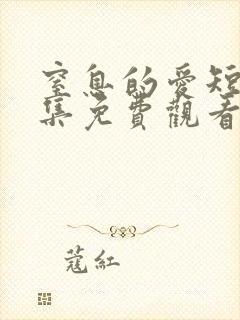 窒息的愛短
集免費觀看
蔻紅